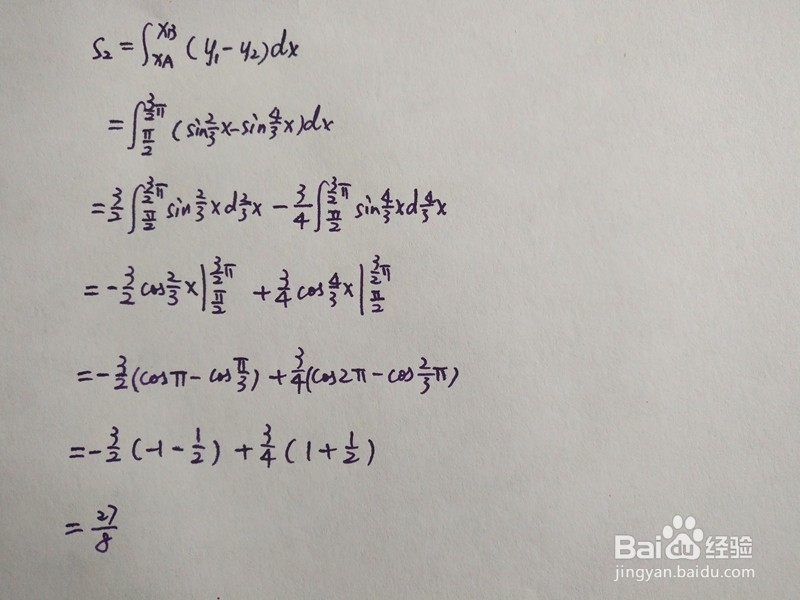 S₂ = ∫_{xA}^{xB} (y₁ - y₂)dx
= ∫_{π/2}^{3/2π} (sin2/3x - sin4/3x)dx
= 3/2 ∫_{π/2}^{3/2π} sin2/3xd2/3x - 3/4 ∫_{π/2}^{3/2π} sin4/3xd4/3x
= -3/2 cos2/3x |_{π/2}^{3/2π} + 3/4 cos4/3x |_{π/2}^{3/2π}
= -3/2 (cosπ - cosπ/3) + 3/4 (cos2π - cos2/3π)
= -3/2 (-1 - 1/2) + 3/4 (1 + 1/2)
= 27/8
Baidu经验
jingyan.baidu.com